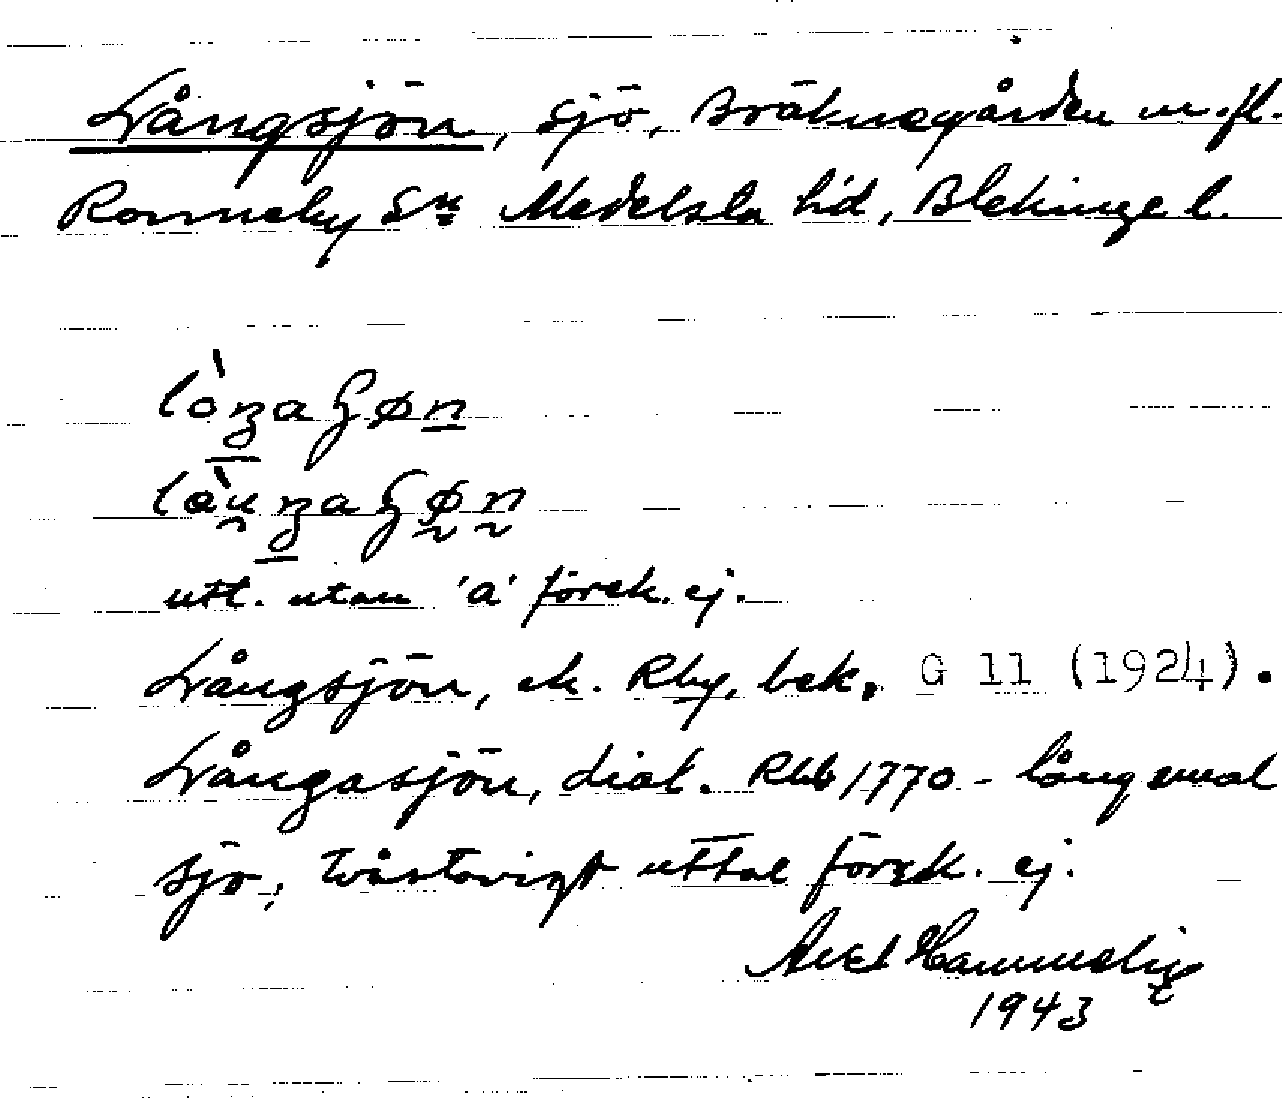 Långsjön, sjö, Bräknegården m.fl.
Ronneby Sn Medelsta hd, Blekinge l.
utt. utan 'a' förek. ej.
Långsjön, ek. Rby, bek. G 11 (1924).
Långasjön, dial. Rbb 1770 - lång smal
sjö, tvåstavigt uttal förek. ej.
Axel Hammelig
1943